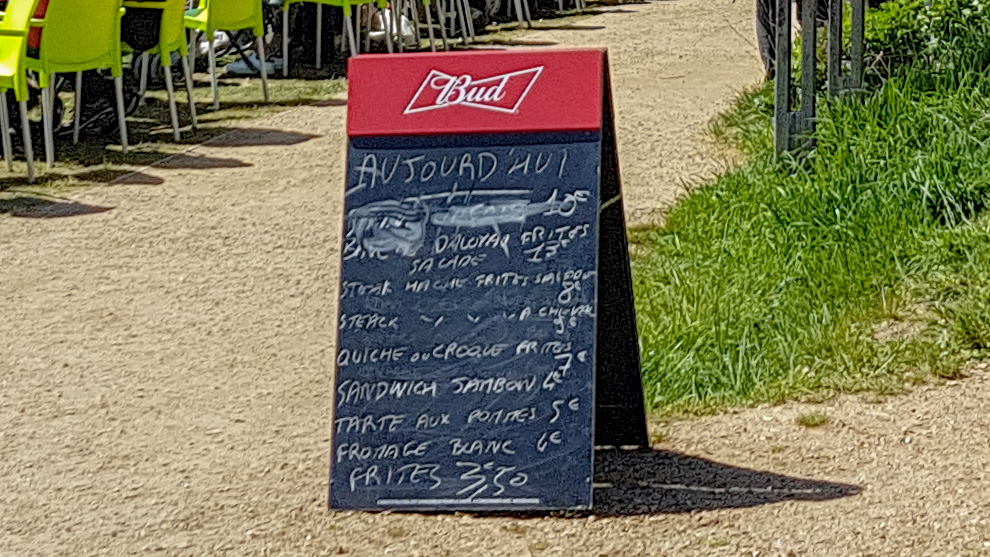 Bud
AUJOURD'HUI
13€
FRITES
SALADE 13€
STEAK HACHE FRITES SALADE
8€
STEACK " " " A CHEVAL
9€
QUICHE OU CROQUE FRITES
7€
SANDWICH JAMBON 4€
TARTE AUX POMMES 5€
FROMAGE BLANC 4€
FRITES 3€50